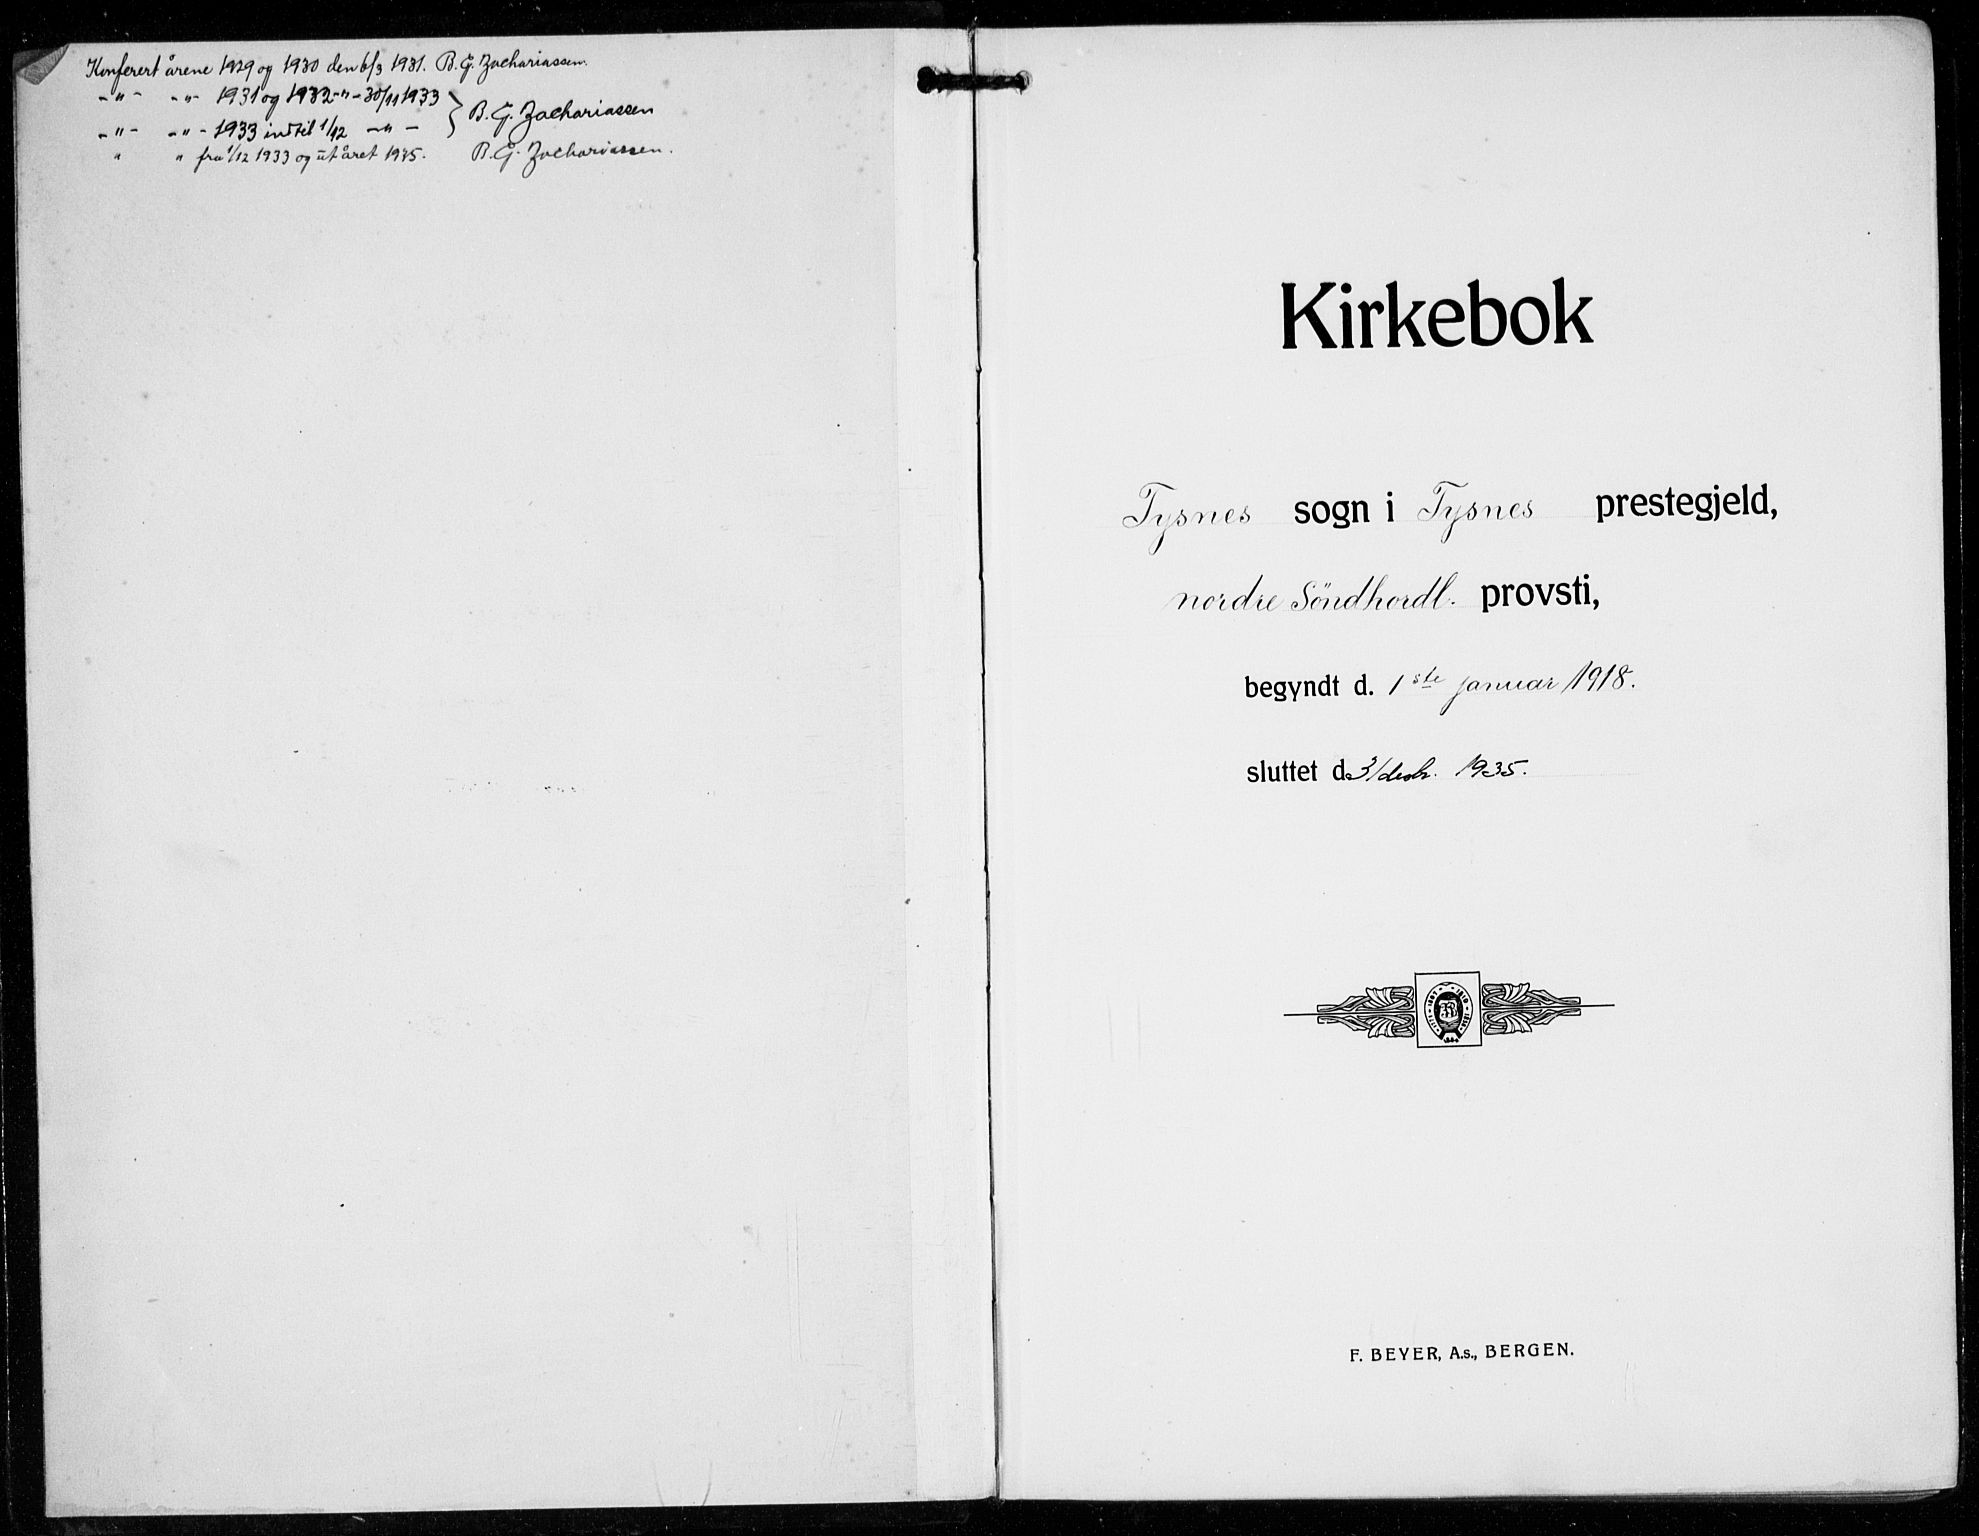 Konferert årene 1929 og 1930 den 6/3 1931. B. G. Zachariassen.
-"- -"- 1931 og 1932 -"- 30/11 1933
-"- -"- 1933 indtil 1/12 -"- } B. G. Zachariassen
" " fra 1/12 1933 og ut året 1935. B. G. Zachariassen.
Kirkebok
Tysnes sogn i Tysnes prestegjeld,
nordre Söndhordl. provsti,
begyndt d. 1ste januar 1918.
sluttet d. 31 desbr. 1935.
F. BEYER, A.s., BERGEN.